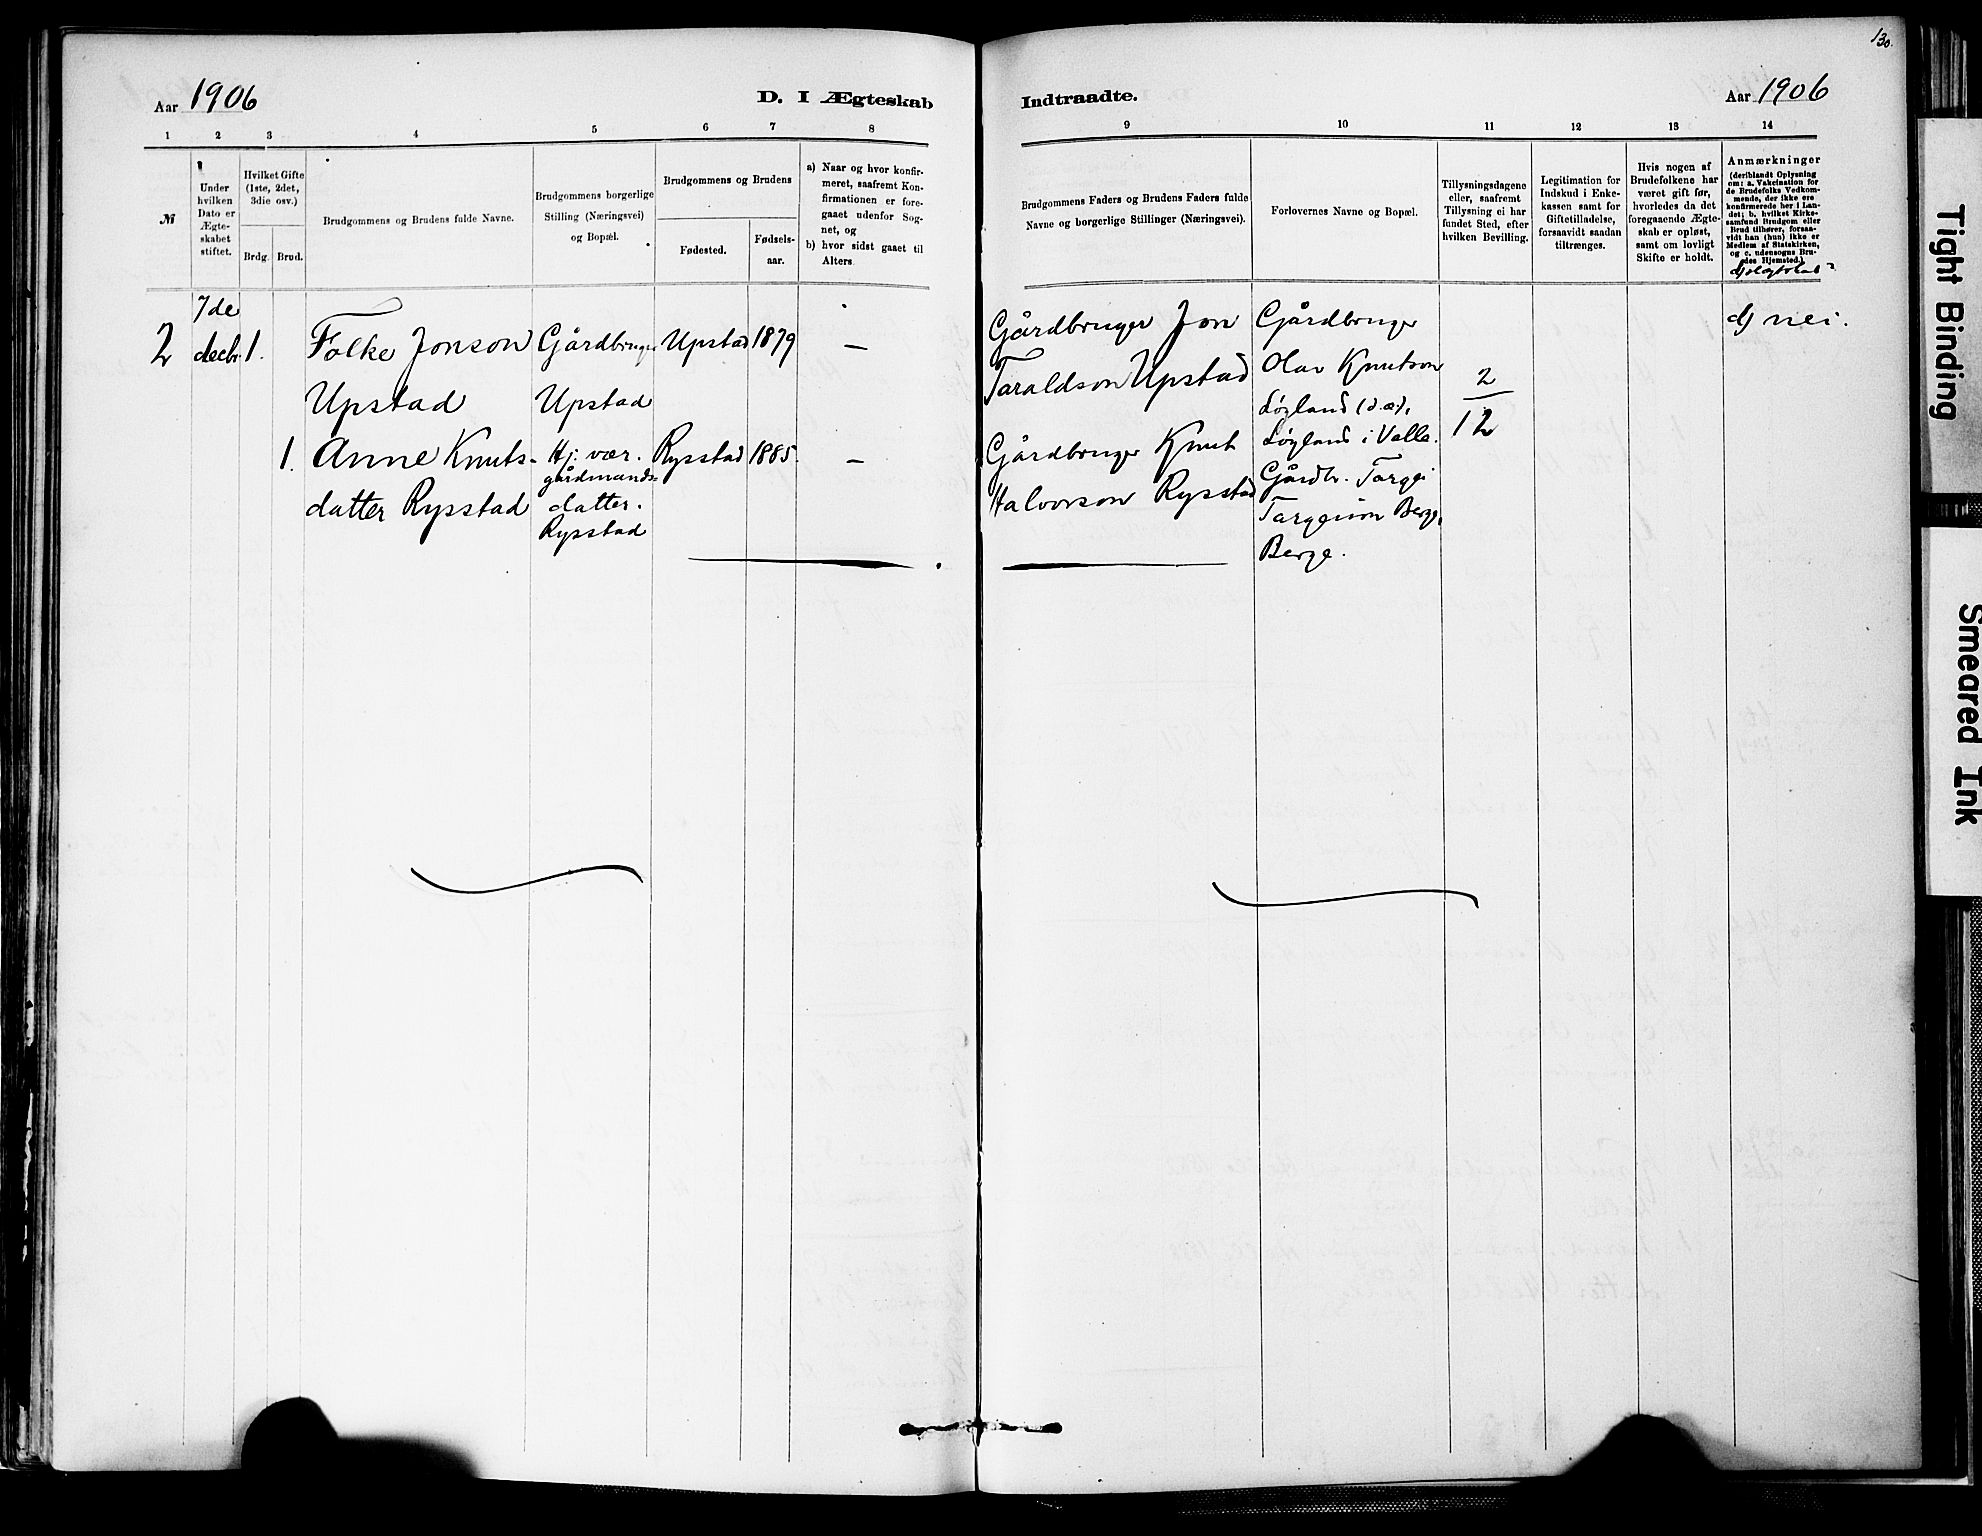 130.
Aar 1906
D. I Ægteskab
Indtraadte.
Aar 1906
1 2 3 4 5 6 7 8
9 10 11 12 13 14
№
Under hvilken Dato er Ægteskabet stiftet.
Hvilket Gifte (1ste, 2det, 3die osv.)
Brdg. Brud.
Brudgommens og Brudens fulde Navne.
Brudgommens borgerlige Stilling (Næringsvei) og Bopæl.
Brudgommens og Brudens
Fødested.
Fødselsaar.
a) Naar og hvor konfirmeret, saafremt Konfirmationen er foregaaet udenfor Sognet, og
b) hvor sidst gaaet til Alters
Brudgommens Faders og Brudens Faders fulde Navne og borgerlige Stillinger (Næringsvei).
Forlovernes Navne og Bopæl.
Tillysningsdagene eller, saafremt Tillysning ei har fundet Sted, efter hvilken Bevilling.
Legitimation for Indskud i Enkekassen samt for Giftetilladelse, forsaavidt saadan tiltrænges.
Hvis nogen af Brudefolkene har været gift før, hvorledes da det foregaaende Ægteskab er opløst, samt om lovligt Skifte er holdt.
Anmærkninger
(deriblandt Oplysning om: a. Vakcination for de Brudefolks Vedkommende, der ikke ere konfirmerede her i Landet; b. hvilket Kirkesamfund Brudgom eller Brud tilhører, forsaavidt han (hun) ikke er Medlem af Statskirken, og c. udensogns Brudes Hjemsted.)
7de
2 decbr. 1. Folke Jonson Gårdbruger Upstad 1879 —
Upstad Upstad
1. Anne Knuts- Hj. vær. Rysstad 1885. —
gårdmands-
datter Rysstad datter.
Rysstad
Gårdbruger Jon
Taraldson Upstad
Gårdbruger Knut
Halvorson Rysstad
Gårdbruger
Olav Knutson
Løyland (d.æ),
Løyland i Valle.
Gårdbr. Targei
Targeison Berge,
Berge.
2
12
d) nei.
Tight Binding
Smeared Ink